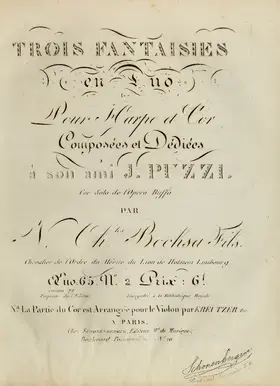 TROIS FANTAISIES
en Duo
Pour Harpe et Cor
Composées et Dédiées
à son ami J. PUZZI.
Cor Solo de l'Opera Buffa
PAR
N. Ch.les Bochsa Fils.
Chevalier de l'Ordre du Mérite du Lion de Holstein Limbourg
Œuv. 65. N° 2 Prix: 6f
Propriété de l'Editeur. Enregistré à la Bibliothèque Royale
N.a La Partie du Cor est Arrangée pour le Violon par KREUTZER
A PARIS,
Boulevard
Schonenberger